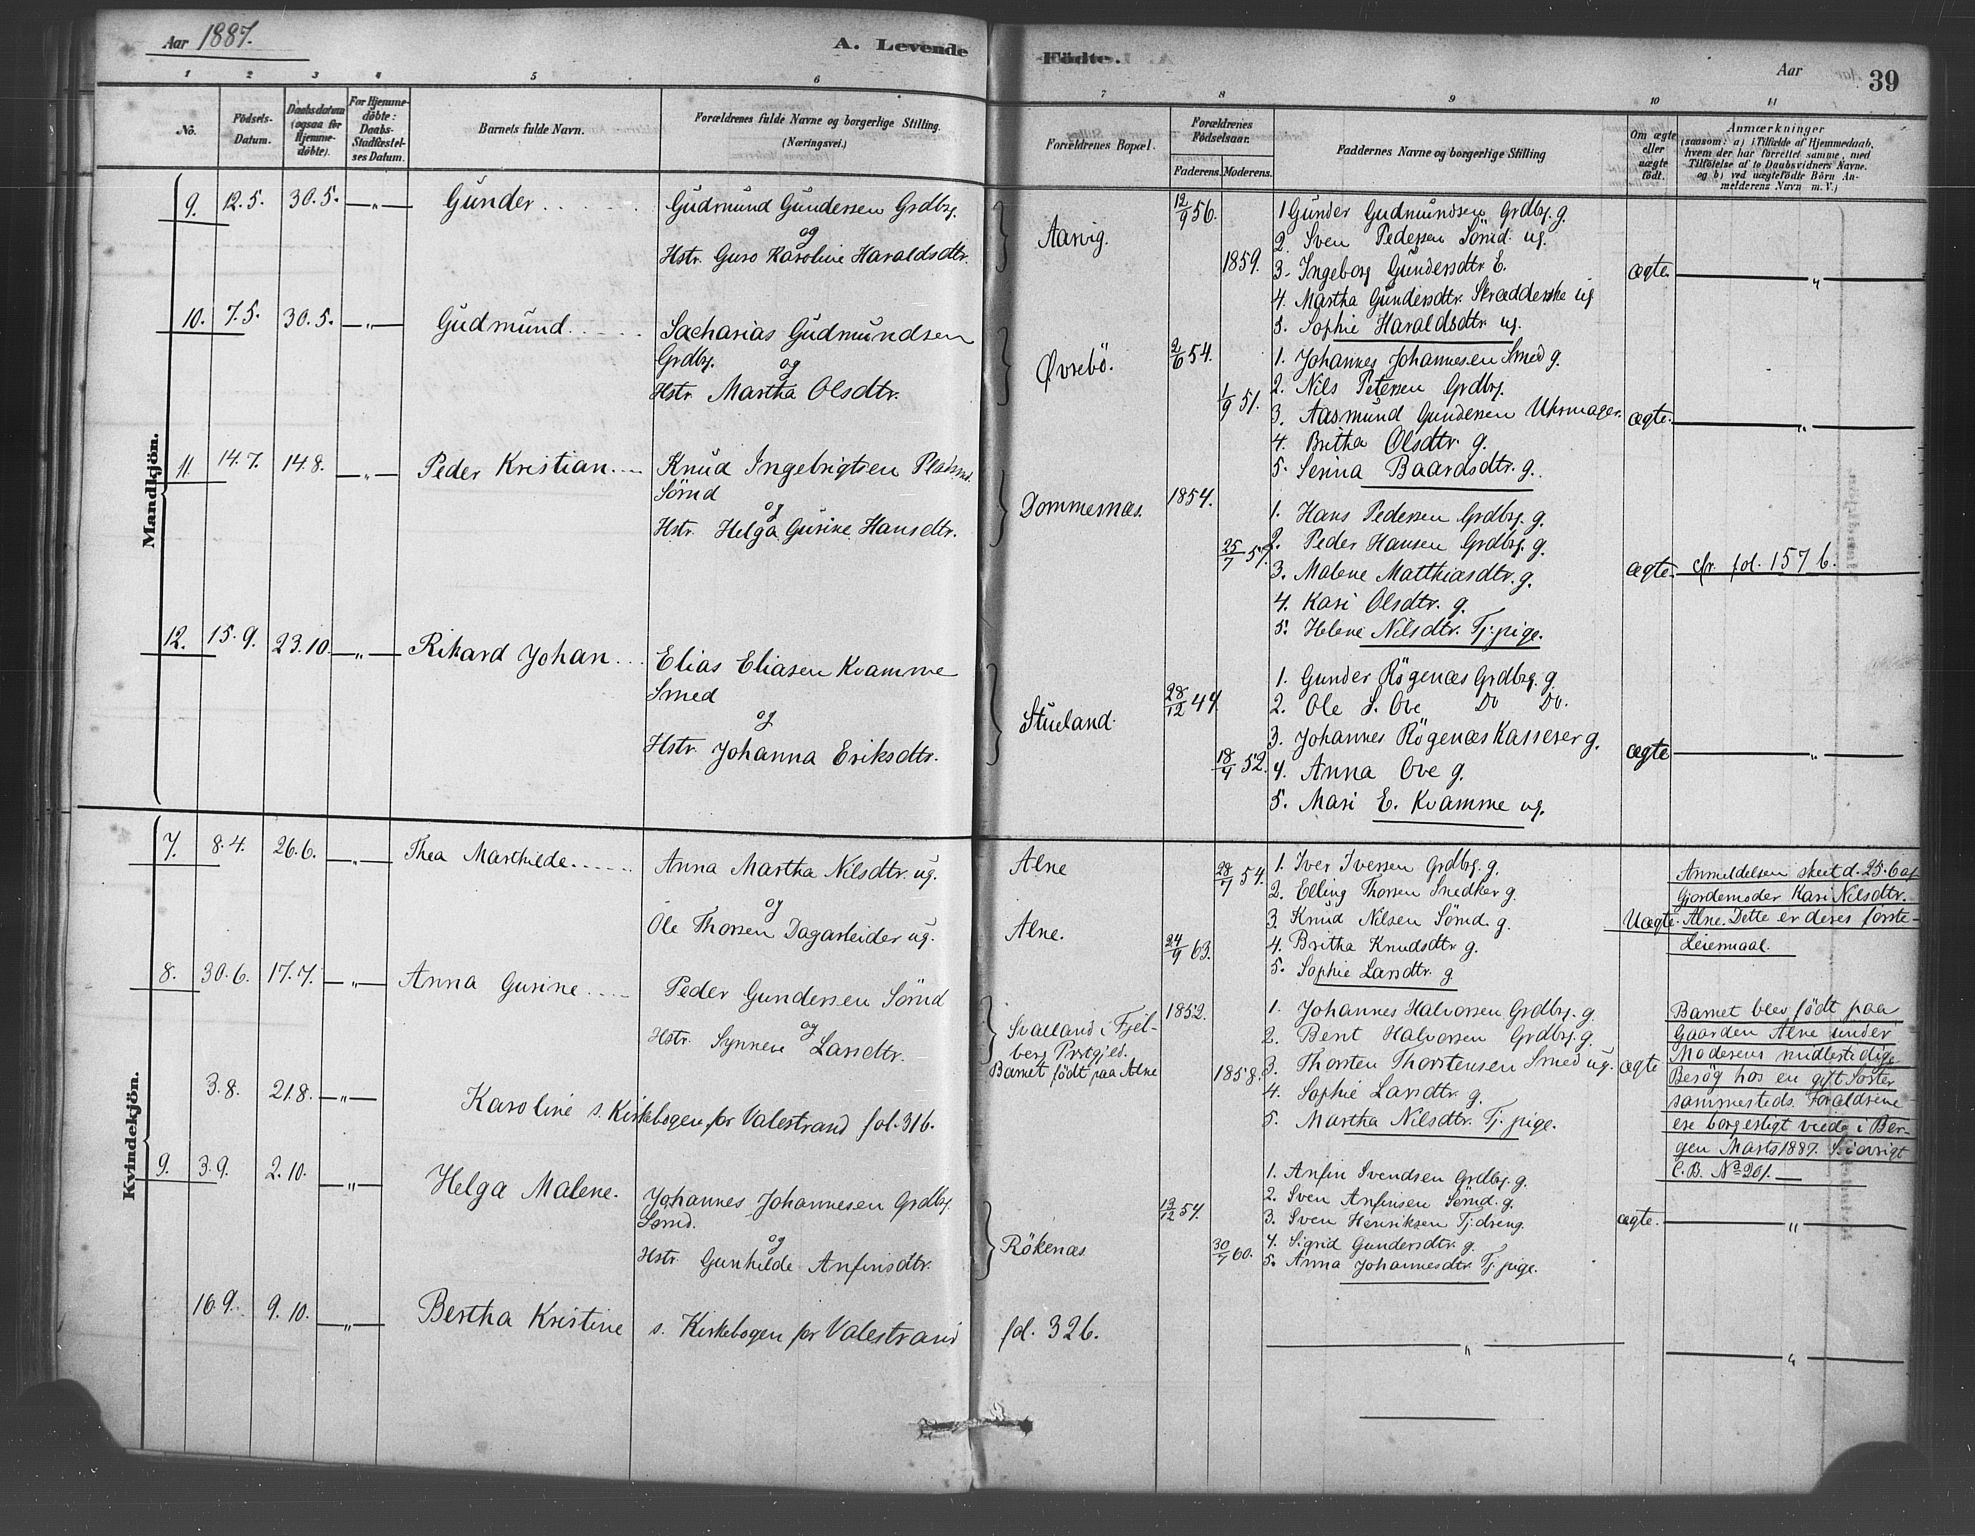 Aar 1887.
A. Levende
Födte.
Aar
39
1 2 3 4 5 6
7 8 9 10 11
No.
Födsels-Datum.
Daabsdatum (ogsaa for Hjemme-döbte).
For Hjemme-döbte: Daabs-Stadfæstel-ses Datum.
Barnets fulde Navn.
Forældrenes fulde Navne og borgerlige Stilling.
(Næringsvei.)
Forældrenes Bopæl.
Forældrenes Födselsaar.
Faderens. Moderens.
Faddernes Navne og borgerlige Stilling
Om ægte eller uægte födt.
Anmærkninger
(saasom: a) i Tilfælde af Hjemmedaab,
hvem der har forrettet samme, med
Tilföielse af to Daabsvidners Navne.
og b) ved uægtefödte Börn An-
melderens Navn m. V.)
Mandkjön.
9. 12.5. 30.5. — „ — Gunder
Gudmund Gundersen Grdbg.
og
Hstr. Guro Karoline Haraldsdtr.
Aarvig.
12/9 56.
1859.
1 Gunder Gudmundsen Grdbg. g.
2. Sven Pedersen Sömd. ug.
3. Ingeborg Gundersdtr. E.
4. Martha Gundersdtr. Skrædderske ug
5. Sophie Haraldsdtr. ug.
ægte. — „ —
10. 7.5. 30.5. — „ — Gudmund
Sacharias Gudmundsen
Grdbg. og
Hstr. Martha Olsdtr.
Øvrebö.
2/6 54.
1/9 51.
1. Johannes Johannesen Smed g.
2. Nils Petersen Grdbg.
3. Aasmund Gundersen Uhrmager.
4. Britha Olsdtr. g.
5. Serina Baardsdtr. g.
ægte. — „ —
11. 14.7. 14.8. — „ — Peder Kristian
Knud Ingebrigtsen Pladsmd.
Sömd
og
Hstr. Helga Gurine Hansdtr.
Dommersnæs.
1854.
25/7 57.
1. Hans Pedersen Grdbg. g.
2. Peder Hansen Grdbg. g.
3. Malene Matthiasdtr. g.
4. Kari Olsdtr. g.
5. Helene Nilsdtr. Tj: pige.
ægte. cfr. fol. 157 b.
12. 15.9. 23.10. — „ — Rikard Johan
Elias Eliasen Kvamme
Smed
og
Hstr. Johanna Eriksdtr.
Stueland.
28/12 44
18/4 52.
1. Gunder Rögenæs Grdbg. g
2. Ole S. Ove Do Do.
3. Johannes Rögenæs Kasserer g.
4. Anna Ove g.
5. Mari E. Kvamme ug.
ægte — „ —
Kvindekjön.
7. 8.4. 26.6. — „ — Thea Marthilde
Anna Martha Nilsdtr. ug.
og
Ole Thorsen Dagarbeider ug.
Alne
Alne.
28/7 54.
24/9 63.
1. Iver Iversen Grdbg. g.
2. Elling Thorsen Snedker g.
3. Knud Nilsen Sömd. g.
4. Britha Knudsdtr. g.
5. Sophie Larsdtr. g
Uægte.
Anmeldelsen skeet d. 25.6 af
Gjordemoder Kari Nilsdtr.
Alne. Dette er deres første
Leiermaal.
8. 30.6. 17.7. — „ — Anna Gurine
Peder Gundersen Sömd
og
Hstr. Synneve Larsdtr.
Svalland i Fjel-
berg Prstgjed.
Barnet födt paa Alne
1852.
1858.
1. Johannes Halvorsen Grdbg. g.
2. Bent Halvorsen Grdbg. g.
3. Thorsten Thorstensen Smed ug.
4. Sophie Larsdtr. g.
5. Martha Nilsdtr. Tj. pige.
ægte
Barnet blev födt paa
Gaarden Alne under
Moderens midlertidige
Besög hos en gift Söster
sammesteds. Forældrene
ere borgerligt viede i Ber-
gen Marts 1887. S. iøvrigt
C.B. No 201.
3.8. 21.8. — „ — Karoline s. Kirkebogen for Valestrand fol. 316.
9. 3.9. 2.10. — „ — Helga Malene.
Johannes Johannesen Grdbg.
Sömd.
og
Hstr. Gunhilde Anfinsdtr.
Rökenæs
13/12 57.
30/7 60.
1. Anfin Svendsen Grdbg. g.
2. Sven Anfinsen Sömd. g.
3. Sven Henriksen Tj: dreng.
4. Sigrid Gundersdtr. g.
5. Anna Johannesdtr. Tj. pige.
ægte. — „ —
16.9. 9.10. — „ — Bertha Kristine s. Kirkebogen for Valestrand fol. 326.